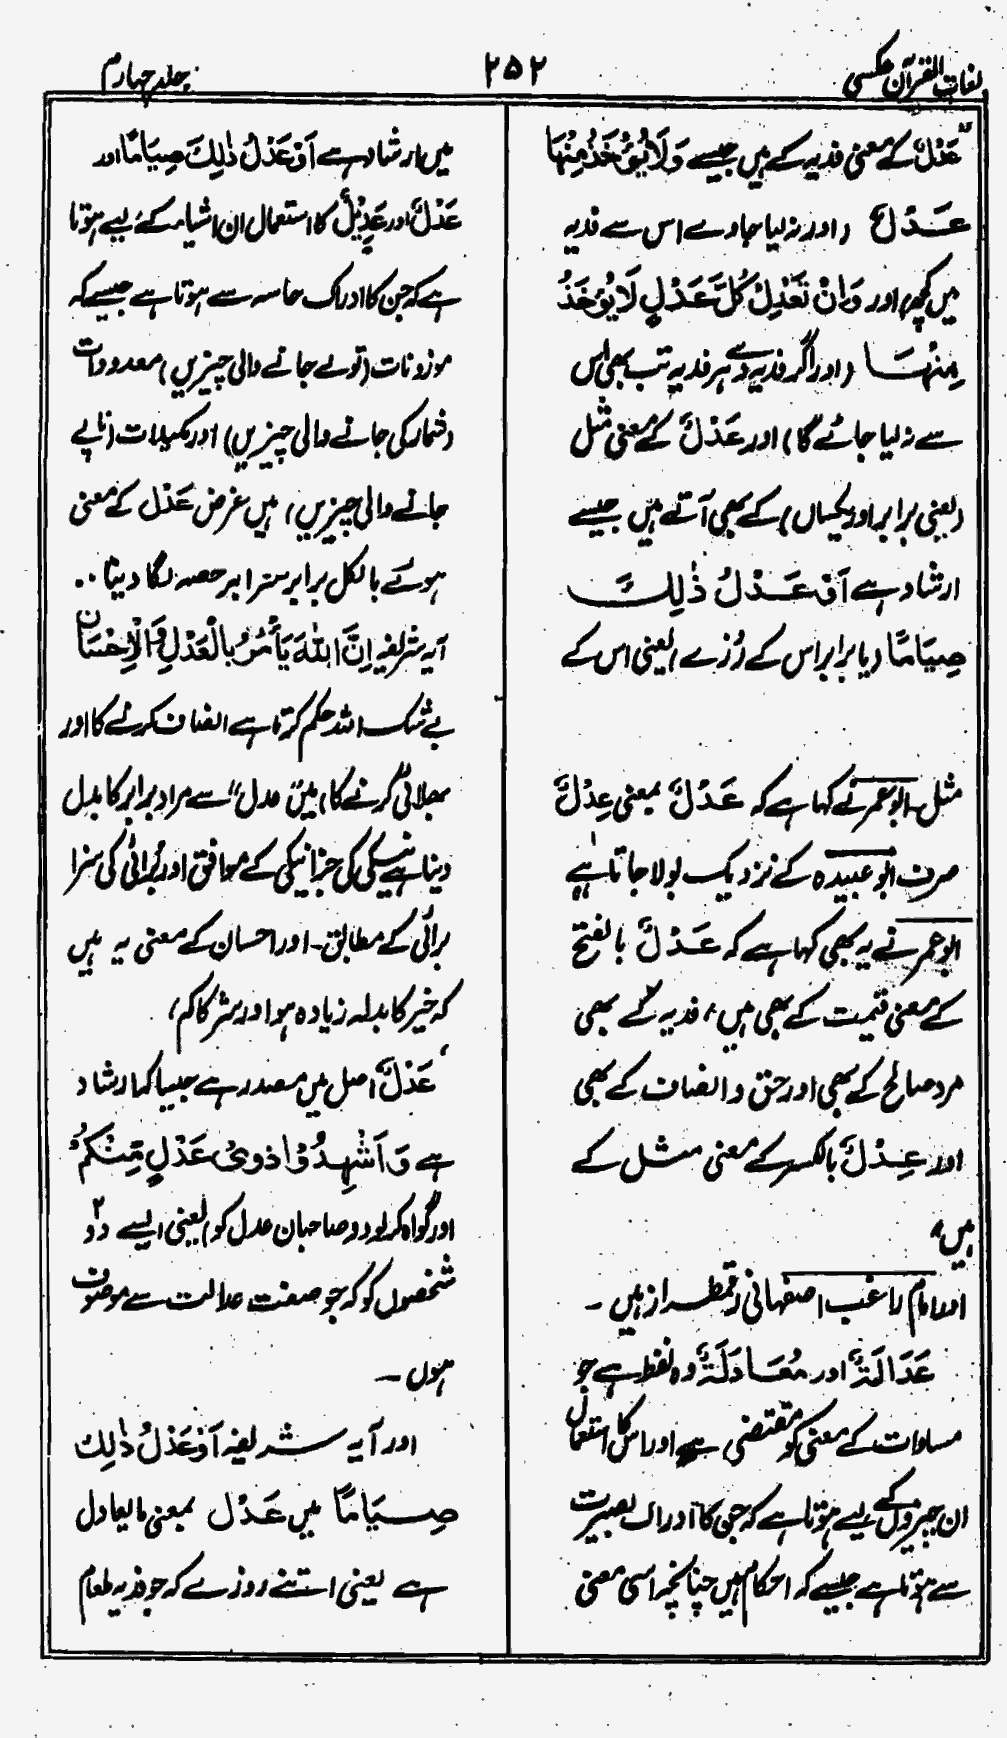 لغات القرآن عکسی
۲۵۲
جلد چہارم
عَدْلٌ کے معنی فدیہ کے ہیں جیسے وَلَا یُؤْخَذُ مِنْهَا
عَدْلٌ (اور نہ لیا جاوے اس سے فدیہ
میں کچھ) اور وَاِنْ تَعْدِلْ کُلَّ عَدْلٍ لَا یُؤْخَذْ
مِنْهَا (اور اگر فدیہ دے ہر فدیہ تب بھی اس
سے نہ لیا جائے گا) اور عَدْلٌ کے معنی مثل
(یعنی برابر اور یکساں) کے بھی آتے ہیں جیسے
ارشاد ہے اَوْ عَدْلُ ذٰلِکَ
صِیَامًا (یا برابر اس کے روزے) یعنی اس کے
مثل۔ ابو عمر نے کہا ہے کہ عَدْلٌ بمعنی عِدْلٌ
صرف ابو عبیدہ کے نزدیک بولا جاتا ہے
ابو عمر نے یہ بھی کہا ہے کہ عَدْلٌ بالفتح
کے معنی قیمت کے بھی ہیں، فدیہ کے بھی
مرد صالح کے بھی اور حق و انصاف کے بھی
اور عِدْلٌ بالکسر کے معنی مثل کے
ہیں،
اور امام راغب اصفہانی رقمطراز ہیں۔
عَدَالَةٌ اور مُعَادَلَةٌ وہ لفظ ہے جو
مساوات کے معنی کو مقتضی ہے اور اس کا استعمال
ان چیزوں کے لیے ہوتا ہے کہ جن کا ادراک بصیرت
سے ہوتا ہے جیسے کہ احکام ہیں چنانچہ اسی معنی
میں ارشاد ہے اَوْ عَدْلُ ذٰلِکَ صِیَامًا اور
عَدْلٌ اور عَدِیْلٌ کا استعمال ان اشیاء کے لیے ہوتا
ہے کہ جن کا ادراک حاسہ سے ہوتا ہے جیسے کہ
موزونات (تولے جانے والی چیزیں) معدودات
(شمار کی جانے والی چیزیں) اور مکیلات (ناپے
جانے والی چیزیں) ہیں غرض عَدْل کے معنی
ہوئے بالکل برابر سرابر حصہ لگا دینا۔۔
آیہ شریفہ اِنَّ اللّٰہَ یَأْمُرُ بِالْعَدْلِ وَالْاِحْسَانِ
بے شک اللہ حکم کرتا ہے انصاف کرنے کا اور
بھلائی کرنے کا) میں "عدل" سے مراد برابر کا بدل
دینا ہے نیکی کی جزا نیکی کے موافق اور بُرائی کی سزا
برائی کے مطابق۔ اور احسان کے معنی یہ ہیں
کہ خیر کا بدلہ زیادہ ہو اور شر کا کم،
عَدْلٌ اصل میں مصدر ہے جیسا کہ ارشاد
ہے وَ اَشْهِدُوْا ذَوَیْ عَدْلٍ مِّنْکُمْ
اور گواہ کر لو دو صاحبان عدل کو) یعنی ایسے دو
شخصوں کو کہ جو صفت عدالت سے موصوف
ہوں۔
اور آیہ شریفہ اَوْ عَدْلُ ذٰلِکَ
صِیَامًا میں عَدْل بمعنی مایعادل
ہے یعنی اتنے روزے کہ جو فدیہ طعام